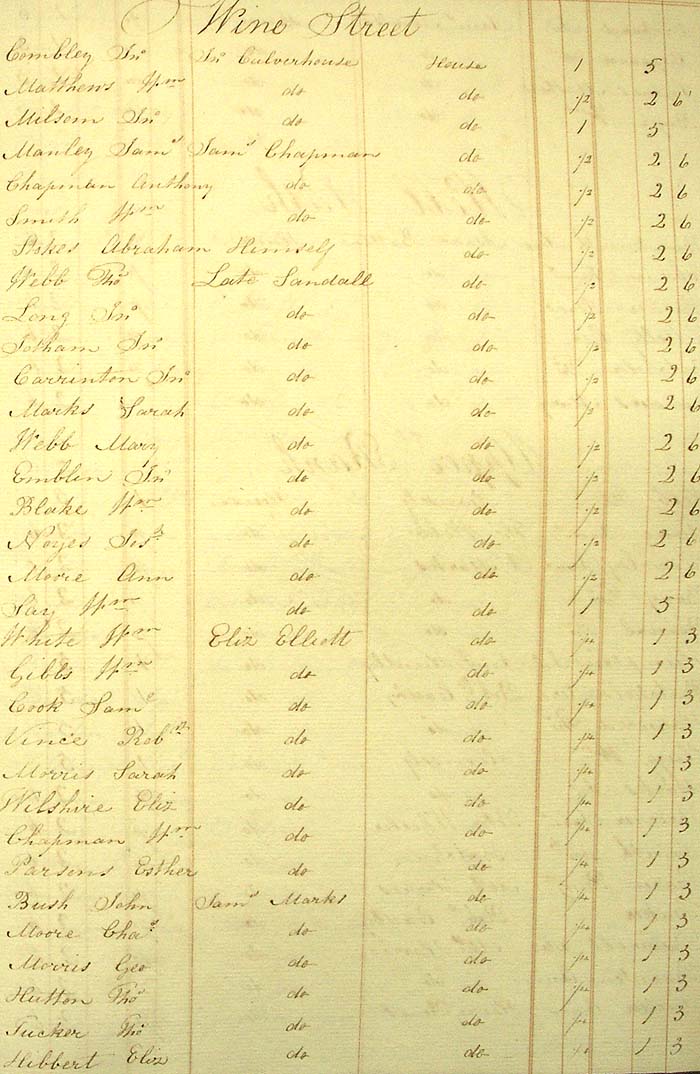 Wine Street
Combley Jno Jno Culverhouse House 1 5
Matthews Wm do do 1/2 2 6
Milsom Jno do do 1 5
Manley Saml Saml Chapman do 1/2 2 6
Chapman Anthony do do 1/2 2 6
Smith Wm do do 1/2 2 6
Stokes Abraham Himself do 1/2 2 6
Webb Tho Late Sandall do 1/2 2 6
Long Jno do do 1/2 2 6
Jotham Jno do do 1/2 2 6
Carrinton Jno do do 1/2 2 6
Marks Sarah do do 1/2 2 6
Webb Mary do do 1/2 2 6
Emblin Jno do do 1/2 2 6
Blake Wm do do 1/2 2 6
Noyes do do 1/2 2 6
Moore Ann do do 1/2 2 6
Say Wm do do 1 5
White Wm Eliz Elliott do 1/4 1 3
Gibbs Wm do do 1/4 1 3
Cook Saml do do 1/4 1 3
Vince Robt do do 1/4 1 3
Morris Sarah do do 1/4 1 3
Wilshire Eliz do do 1/4 1 3
Chapman Wm do do 1/4 1 3
Parsons Esther do do 1/4 1 3
Bush John Saml Marks do 1/4 1 3
Moore Chas do do 1/4 1 3
Morris Geo do do 1/4 1 3
Hutton Tho do do 1/4 1 3
Tucker Tho do do 1/4 1 3
Hibbert Eliz do do 1/4 1 3